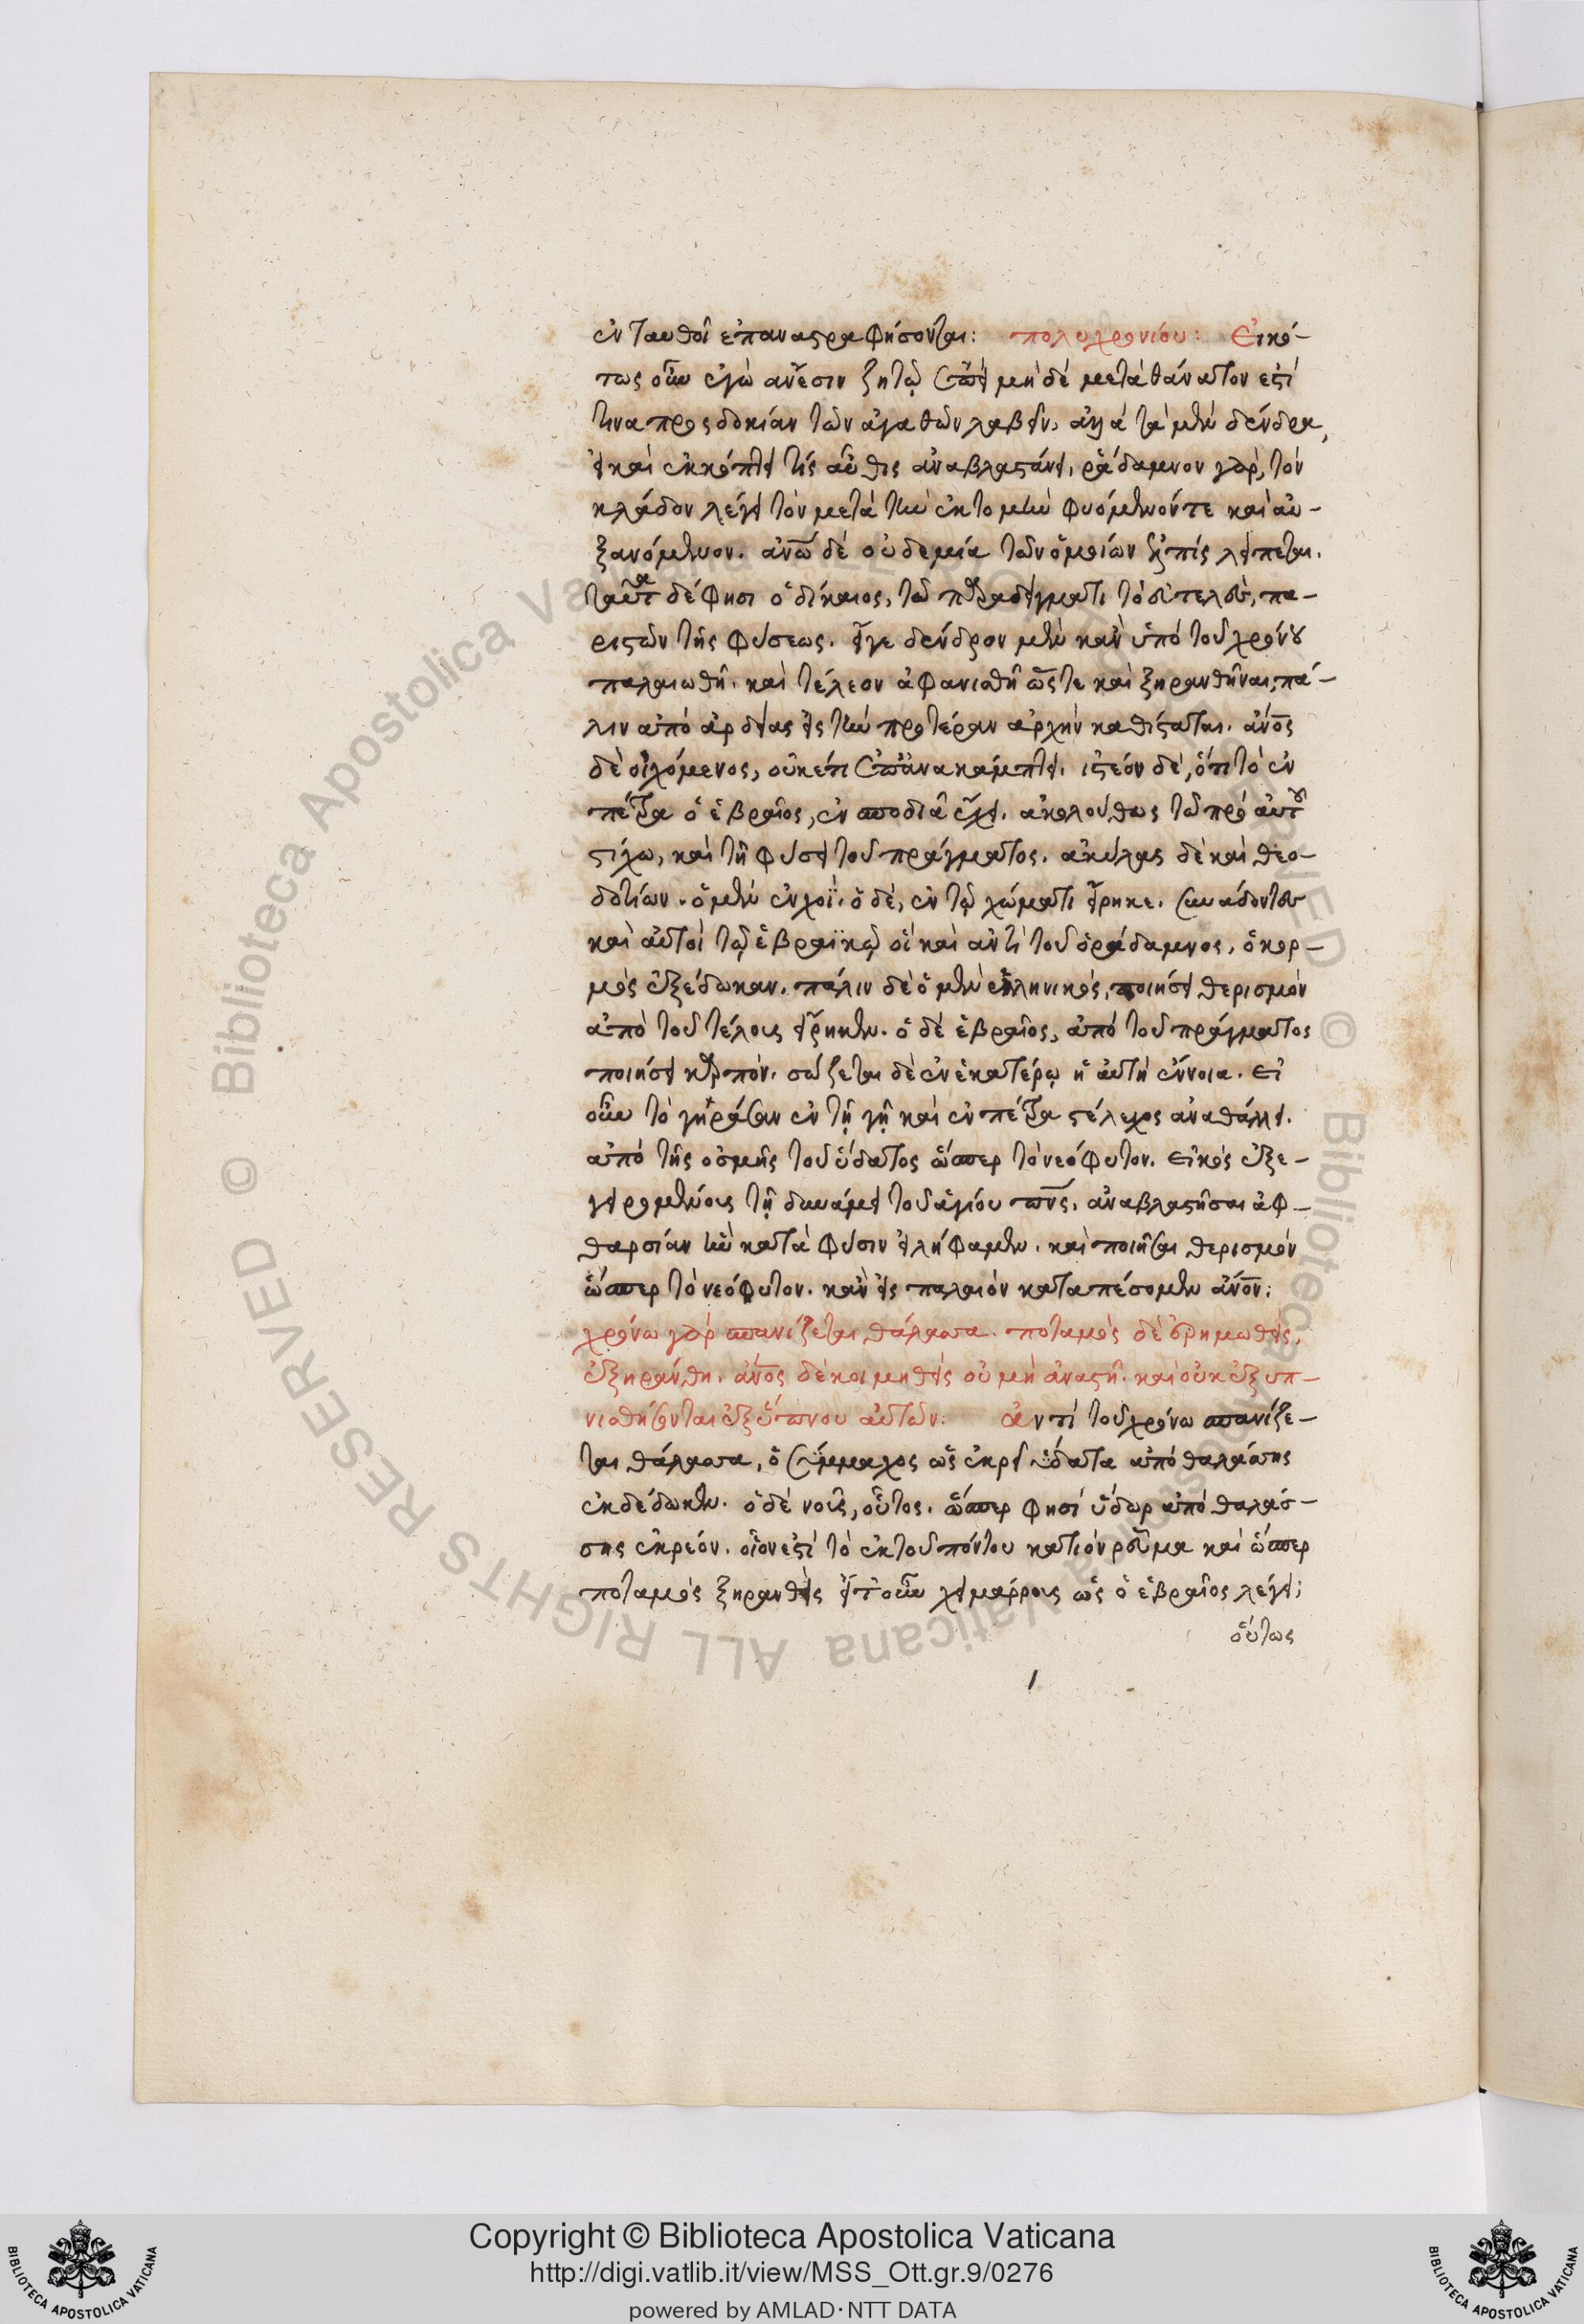 ἐνταυθοῖ ἐπαναστραφήσονται: πολυχρονίου: Εἰκό-
τως οὖν ἐγὼ ἄνεσιν ζητῶ μὴ δὲ μετὰ θάνατον ἐστί
τινα προσδοκίαν τῶν ἀγαθῶν λαβεῖν. ἀλλὰ τὰ μὲν δένδρα,
εἰ καὶ ἐκκόπτει τίς αὖθις ἀναβλαστάνει, ῥάδαμνον γὰρ, τὸν
κλάδον λέγει τὸν μετὰ τὴν ἐκτομὴν φυόμενόν τε καὶ αὐ-
ξανόμενον. ἀνῶ δὲ οὐδεμία τῶν ὁμοίων ἐλπὶς λείπεται.
ταῦτα δέ φησι ὁ δίκαιος, τῶ παραδείγματι τὸ εὐτελὲς, πα-
ριστῶν τῆς φύσεως. εἴγε δένδρον μὲν κἂν ὑπὸ τοῦ χρόνου
παλαιωθῆ. καὶ τέλεον ἀφανισθῆ ὥστε καὶ ξηρανθῆναι, πά-
λιν ἀπὸ ἀρδείας εἰς τὴν προτέραν ἀρχὴν καθίσταται. ἄνος
δὲ οἰχόμενος, οὐκέτι ἐπανακάμπτει. ἰστέον δὲ, ὅτι τὸ ἐν
πέτρα ὁ ἑβραῖος, ἐν σποδιᾶ ἔχει. ἀκολούθως τῶ πρὸ αὐτοῦ
στίχω, καὶ τῆ φύσει τοῦ πράγματος. ἀκύλας δὲ καὶ θεο-
δοτίων. ὁ μὲν ἐν χοΐ. ὁ δὲ, ἐν τῷ χώματι εἴρηκε. συνάδοντες
καὶ αὐτοὶ τῷ ἑβραϊκῷ οἳ καὶ ἀντὶ τοῦ ὀράδαμνος, ὁ κορ-
μὸς ἐξέδωκαν. πάλιν δὲ ὁ μὲν ἑλληνικὸς, ποιήσει θερισμὸν
ἀπὸ τοῦ τέλους εἴρηκεν. ὁ δὲ ἑβραῖος, ἀπὸ τοῦ πράγματος
ποιήσει καρπόν. σώζεται δὲ ἐν ἑκατέρῳ ἡ αὐτὴ ἔννοια. εἰ
οὖν τὸ γηράσαν ἐν τῇ γῇ καὶ ἐν πέτρα στέλεχος ἀναθάλλει.
ἀπὸ τῆς ὀσμῆς τοῦ ὕδατος ὥσπερ τὸ νεόφυτον. εἰκὸς ἐξε-
γειρομένους τῇ δυνάμει τοῦ ἁγίου πνς. ἀναβλαστῆσαι ἀφ-
θαρσίαν ἣν κατὰ φύσιν εἰλήφαμεν. καὶ ποιῆσαι θερισμὸν
ὥσπερ τὸ νεόφυτον. κἂν εἰς παλαιὸν καταπέσομεν ἄνον:
χρόνω γὰρ σπανίζεται θάλασσα. ποταμὸς δὲ ἐρημωθεὶς,
ἐξηράνθη. ἄνος δὲ κοιμηθεὶς οὐ μὴ ἀναστῆ. καὶ οὐκ ἐξυπ-
νισθήσονται ἐξ ὕπνου αὐτῶν: ἀντὶ τοῦ χρόνω σπανίζε-
ται θάλασσα, ὁ σύμμαχος ὡς ἐκρεῖ ὕδατα ἀπὸ θαλάσσης
ἐκδέδωκεν. ὁ δὲ νοῦς, οὗτος. ὥσπερ φησὶ ὕδωρ ἀπὸ θαλάσ-
σης ἐκρέον. οἷον ἐστὶ τὸ ἐκ τοῦ πόντου κατιὸν ῥεῦμα καὶ ὥσπερ
ποταμὸς ξηρανθεὶς εἴτ' οὖν χειμάρρους ὡς ὁ ἑβραῖος λέγει;
οὕτως
Copyright © Biblioteca Apostolica Vaticana
http://digi.vatlib.it/view/MSS_Ott.gr.9/0276
powered by AMLAD·NTT DATA
BIBLIOTECA APOSTOLICA VATICANA
BIBLIOTECA APOSTOLICA VATICANA